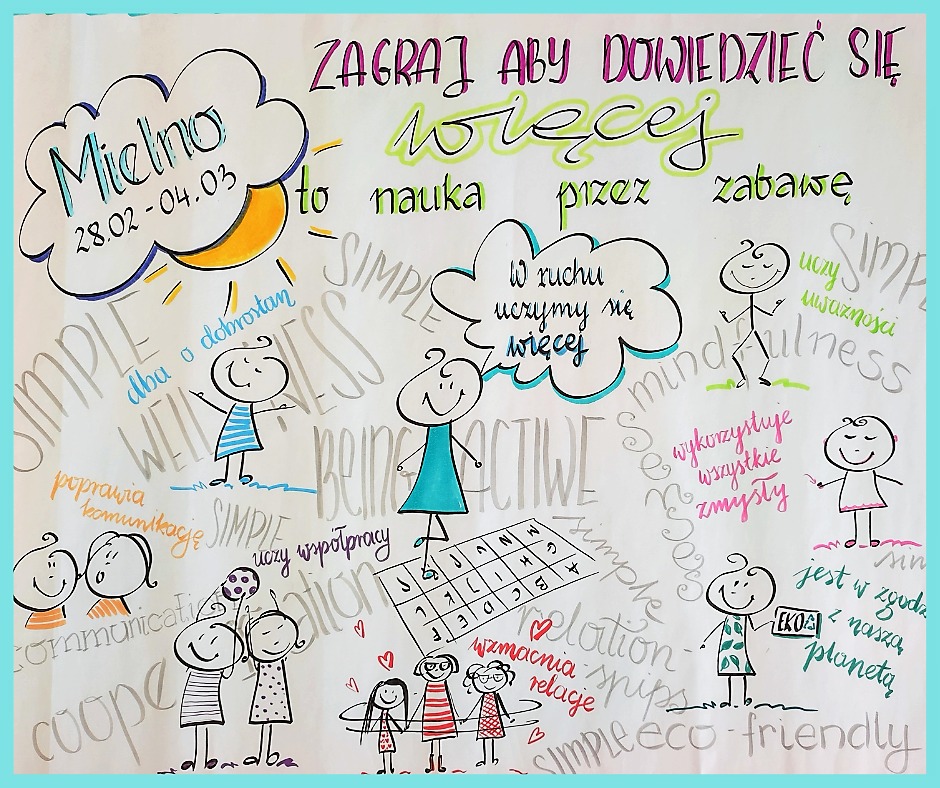 ZAGRAJ ABY DOWIEDZIEĆ SIĘ
więcej
to nauka przez zabawę
Mielno
28.02-04.03
W ruchu
uczymy się
więcej
SIMPLE
SIMPLE
SIMPLE
dba o dobrostan
WELLNESS
uczy
uważności
mindfulness
BEING ACTIWE
wykorzystuje
wszystkie
zmysły
senses
poprawia
komunikację
SIMPLE
communication
uczy współpracy
simple
sim
jest w zgodz
z naszą
planetą
EKO
wzmacnia
relacje
relation
ships
SIMPLE
eco-friendly